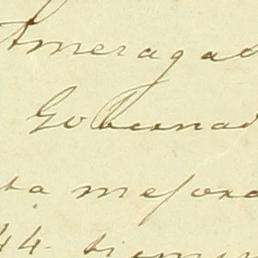 Ameragad
Gobernad
ta mejora
44. siem